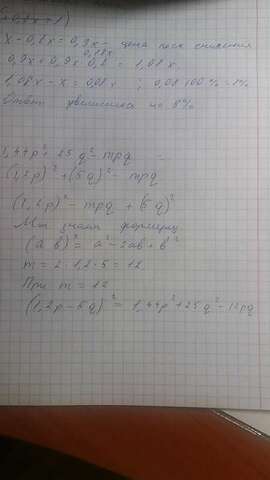 +0,2x+1)
x-0,1x=0,9x - цена после снижения
0,18x
0,9x+0,9x 0,2 = 1,08x
1,08x-x=0,08x ; 0,08 100%=8%
Ответ увеличился на 8%
1,44p²+25q²-mpq
(1,2p)²+(5q)²-mpq
(1,2p)²-mpq+(5q)²
Мы знаем формулу
(a b)²=a²-2ab+b²
m=2·1,2·5=12
При m=12
(1,2p-5q)²=1,44p²+25q²-12pq